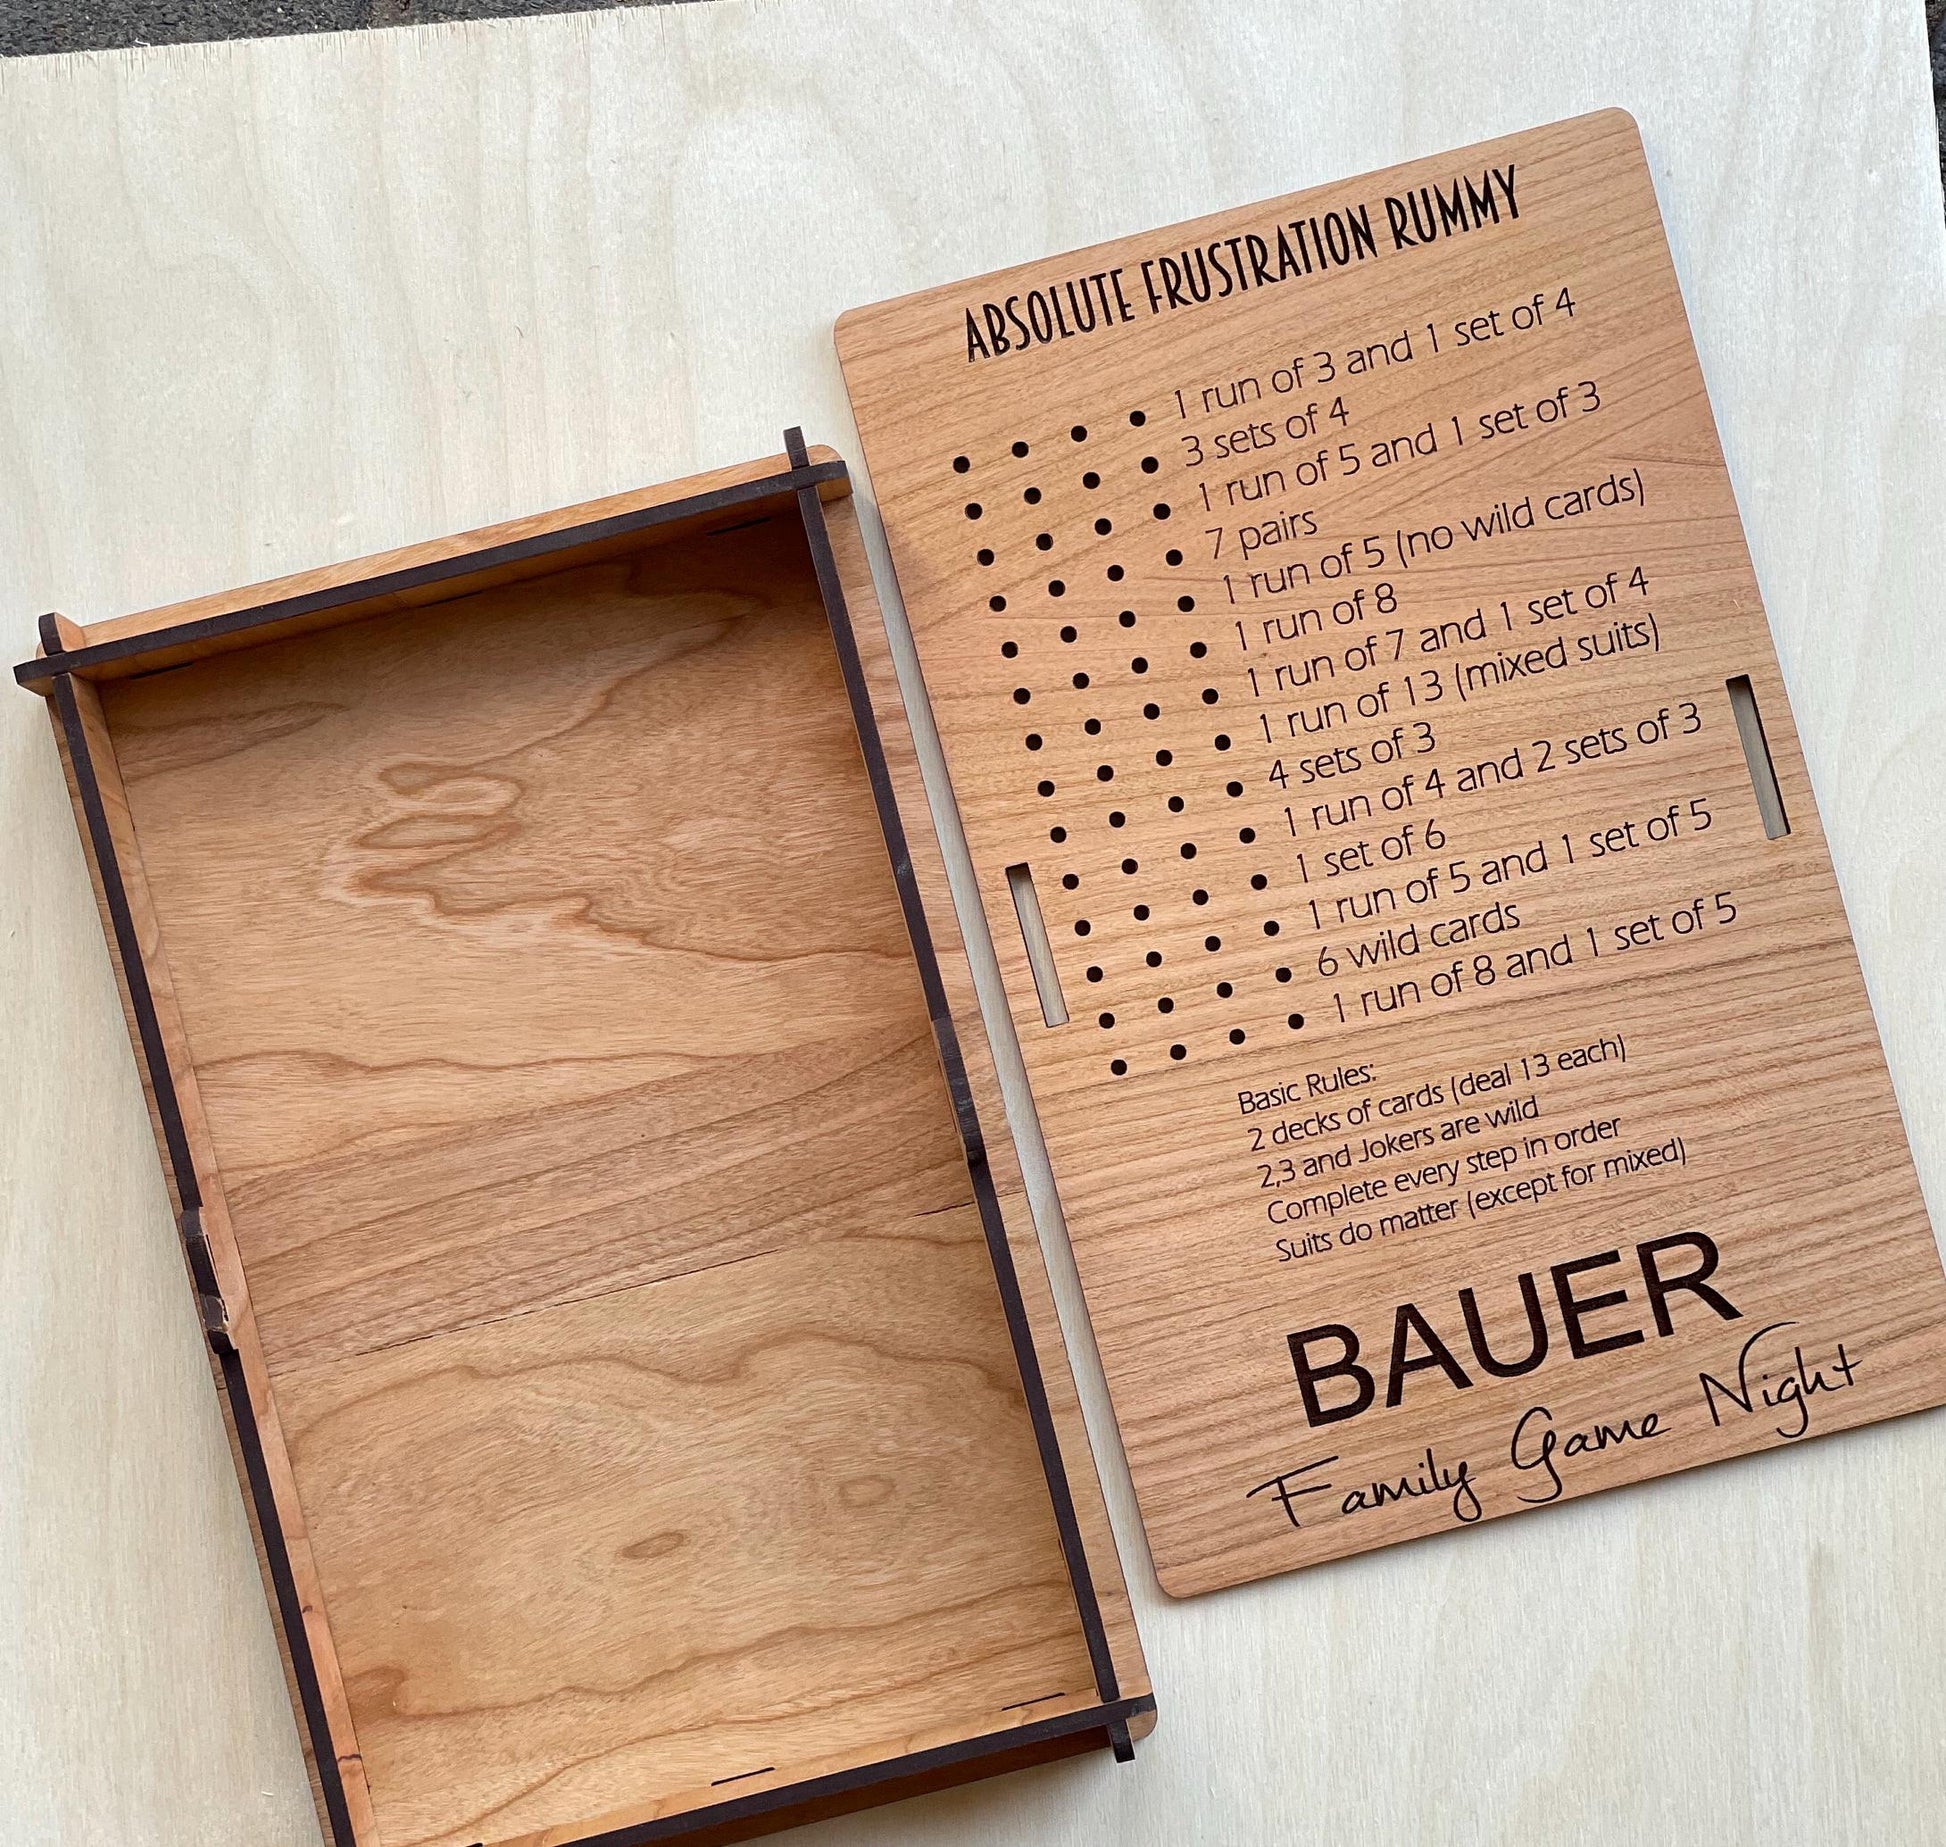 ABSOLUTE FRUSTRATION RUMMY
1 run of 3 and 1 set of 4
3 sets of 4
1 run of 5 and 1 set of 3
7 pairs
1 run of 5 (no wild cards)
1 run of 8
1 run of 7 and 1 set of 4
1 run of 13 (mixed suits)
4 sets of 3
1 run of 4 and 2 sets of 3
1 set of 6
1 run of 5 and 1 set of 5
6 wild cards
1 run of 8 and 1 set of 5
Basic Rules:
2 decks of cards (deal 13 each)
2,3 and Jokers are wild
Complete every step in order
Suits do matter (except for mixed)
BAUER
Family Game Night